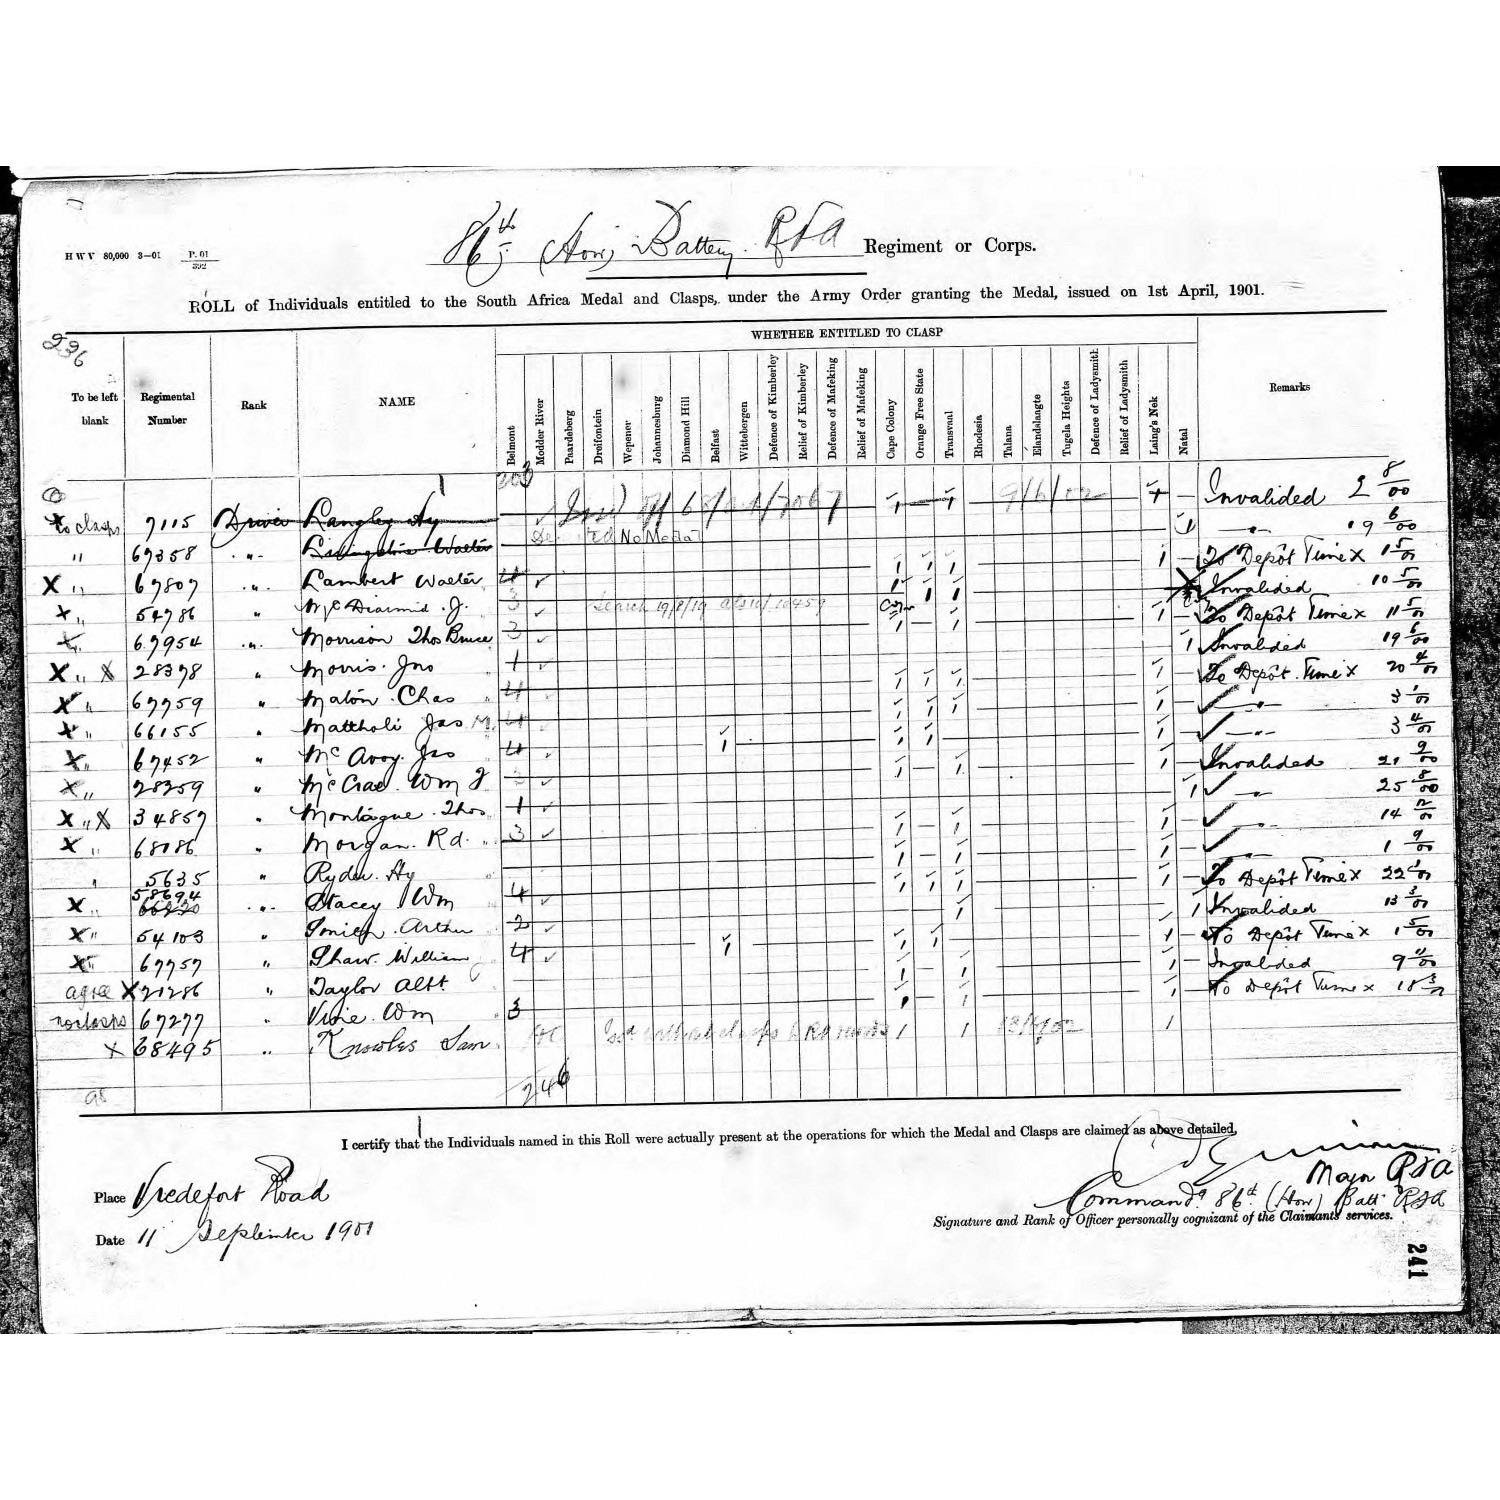 86th (How) Battery RFA Regiment or Corps.
H W V 80,000 3—01 P. 01 / 392
ROLL of Individuals entitled to the South Africa Medal and Clasps, under the Army Order granting the Medal, issued on 1st April, 1901.
236
WHETHER ENTITLED TO CLASP
To be left blank Regimental Number Rank NAME Belmont Modder River Paardeberg Dreifontein Wepener Johannesburg Diamond Hill Belfast Wittebergen Defence of Kimberley Relief of Kimberley Defence of Mafeking Relief of Mafeking Cape Colony Orange Free State Transvaal Rhodesia Talana Elandslaagte Tugela Heights Defence of Ladysmith Relief of Ladysmith Laing's Nek Natal Remarks
203
X to clasps 7115 Driver Langley Hy 9/6/02 Invalided 2 8/00
" 67358 " Livingstone Walter No Medal 1 " 19 6/00
X " 67807 " Lambert Walter 4 1 1 1 1 To Depôt Time X 1 5/01
X " 54786 " McDiarmid J. 3 Search 19/8/19 1 1 1 Invalided 10 5/01
X " 67954 " Morrison Thos Bruce 3 1 1 1 To Depôt Time X 11 5/01
X " X 28378 " Morris Jno 1 1 Invalided 19 6/00
X " 67759 " Maton Chas 4 1 1 1 1 To Depôt Time X 20 4/01
X " 66155 " Mattholi Jas M. 4 1 1 1 1 " 3 1/01
X " 67452 " McAvoy Jas 4 1 1 1 1 " 3 4/01
X " 28259 " McCrae Wm J 3 1 1 1 Invalided 21 9/00
X " X 34857 " Montague Thos 1 1 " 25 8/00
X " 68186 " Morgan Rd. 3 1 1 1 " 14 12/00
" 5635 " Ryder Hy 1 1 1 " 1 9/00
X " 58694 " Stacey Wm 4 1 1 1 1 To Depôt Time X 22 1/01
X " 54103 " Smith Arthur 2 1 1 Invalided 13 3/01
X " 67757 " Shaw William 4 1 1 1 1 To Depôt Time X 1 5/01
agree X 21286 " Taylor Albt. 1 1 1 Invalided 9 11/00
no clasps 67277 " Virie Wm 3 1 1 1 To Depôt Time X 18 3/01
X 68495 " Knowles Sam 1 1 1
246
I certify that the Individuals named in this Roll were actually present at the operations for which the Medal and Clasps are claimed as above detailed,
Major RFA
Place Vredefort Road
Command'g 86th (How) Batt' RFA
Signature and Rank of Officer personally cognizant of the Claimants services.
Date 11 September 1901
241